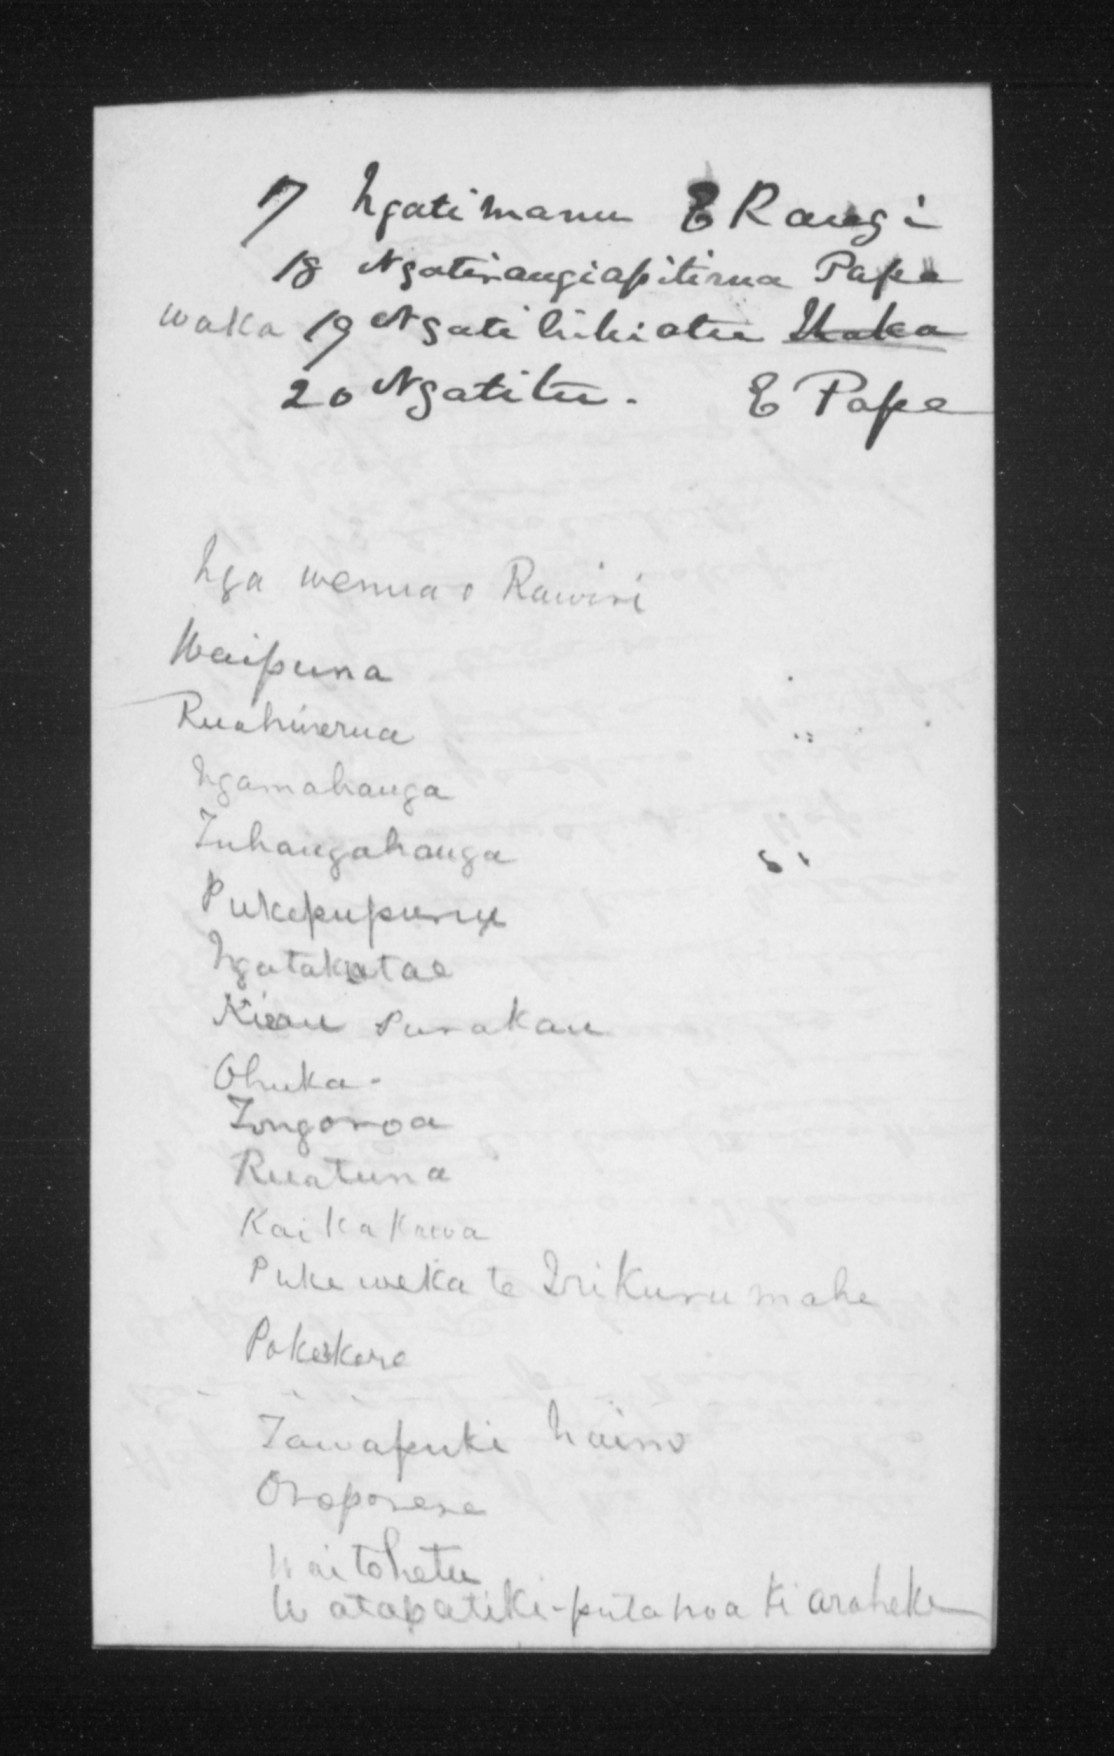 17 Ngatimanu E Rangi
18 Ngatirangiapitirua Papa
waka 19 Ngati hikiatu
20 Ngatitu. E Pape
Nga wenua o Rawiri
Waipuna
Ruahinerua
Ngamahanga
Tuhangahanga
Pukepupuru
Ngatakatae
Purakau
Ohuka -
Tongoroa
Ruatuna
Kaikakawa
Puke weka te Irikurumahe
Pokekere
Tawapuki
Oroporere
Waitohetu
Watapatiki-putahoa ki araheke